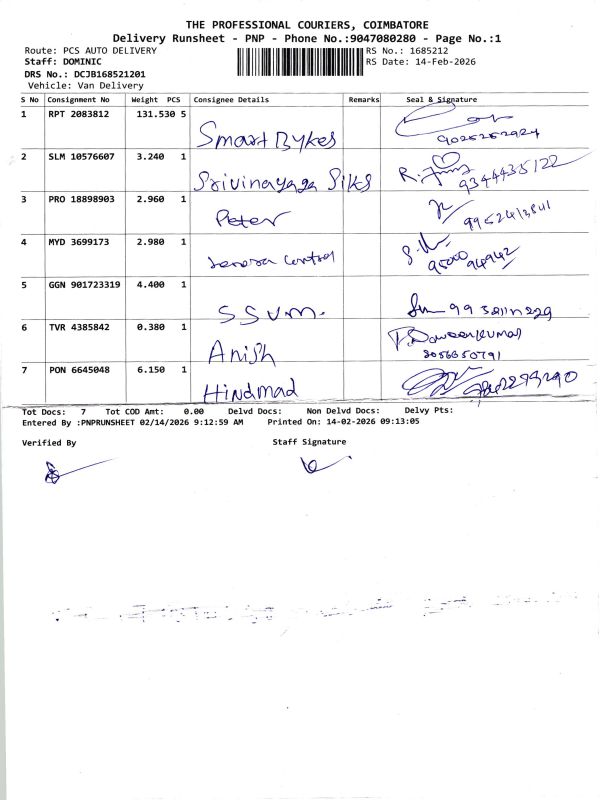 THE PROFESSIONAL COURIERS, COIMBATORE
Delivery Runsheet - PNP - Phone No.:9047080280 - Page No.:1
Route: PCS AUTO DELIVERY RS No.: 1685212
Staff: DOMINIC RS Date: 14-Feb-2026
DRS No.: DCJB168521201
Vehicle: Van Delivery
S No Consignment No Weight PCS Consignee Details Remarks Seal & Signature
1 RPT 2083812 131.530 5 Smart Bykes
2 SLM 10576607 3.240 1 Srivinayaga Silks 9344435122
3 PRO 18898903 2.960 1 Peter
4 MYD 3699173 2.980 1 control
5 GGN 901723319 4.400 1 SSVM.
6 TVR 4385842 0.380 1 Anish
8056650791
7 PON 6645048 6.150 1 Hindmad
Tot Docs: 7 Tot COD Amt: 0.00 Delvd Docs: Non Delvd Docs: Delvy Pts:
Entered By :PNPRUNSHEET 02/14/2026 9:12:59 AM Printed On: 14-02-2026 09:13:05
Verified By Staff Signature